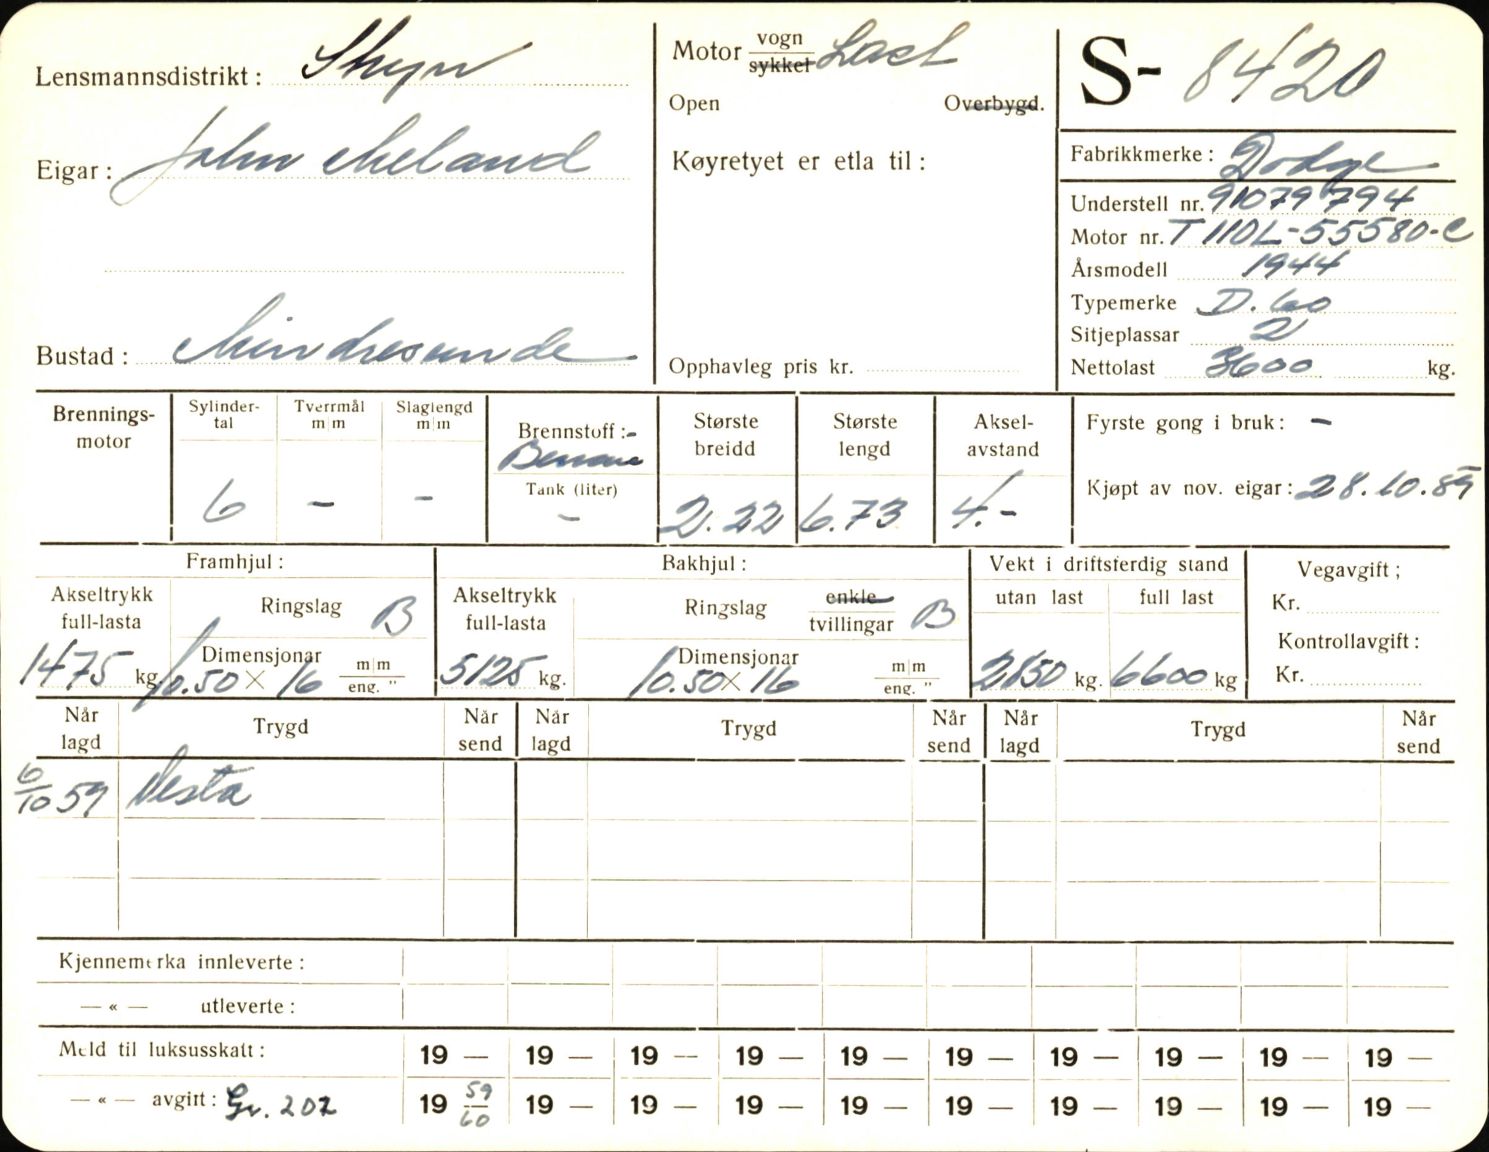 Lensmannsdistrikt: Stryn
Motor vogn Last
sykkel
S- 8420
Open Overbygd.
Eigar: John Meland
Køyretyet er etla til:
Fabrikkmerke: Dodge
Understell nr. 91079794
Motor nr. T 110L-55580-C
Årsmodell 1944
Typemerke D.60
Sitjeplassar 2
Bustad: Mindresunde
Opphavleg pris kr.
Nettolast 3600 kg.
Brennings-
motor
Sylinder-
tal
6
Tverrmål
m|m
-
Slaglengd
m|m
-
Brennstoff:-
Tank (liter)
-
Største
breidd
2.22
Største
lengd
6.73
Aksel-
avstand
4.-
Fyrste gong i bruk: -
Kjøpt av nov. eigar: 28.10.59
Framhjul:
Akseltrykk
full-lasta
1475 kg.
Ringslag B
Dimensjonar m|m
10.50 × 16 eng. "
Bakhjul:
Akseltrykk
full-lasta
5125 kg.
Ringslag enkle
tvillingar B
Dimensjonar m|m
10.50 × 16 eng. "
Vekt i driftsferdig stand
utan last full last
2850 kg. 6600 kg
Vegavgift;
Kr.
Kontrollavgift:
Kr.
Når
lagd Trygd Når
send Når
lagd Trygd Når
send Når
lagd Trygd Når
send
6/10 59 Vesta
Kjennemerka innleverte:
— « — utleverte:
Meld til luksusskatt: 19 — 19 — 19 — 19 — 19 — 19 — 19 — 19 — 19 — 19 —
— « — avgift: Gr. 202 19 59/60 19 — 19 — 19 — 19 — 19 — 19 — 19 — 19 — 19 —